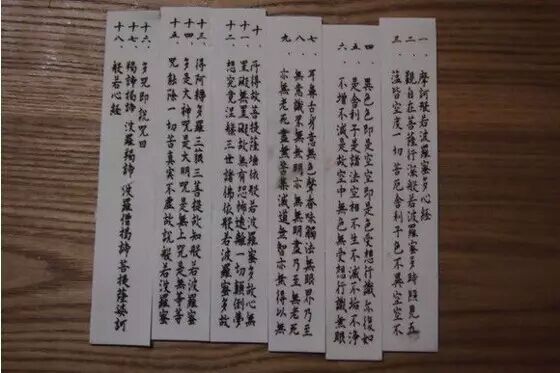 一、摩訶般若波羅蜜多心経
二、觀自在菩薩行深般若波羅蜜多時照見五
三、蘊皆空度一切苦厄舍利子色不異空空不
四、異色色即是空空即是色受想行識亦復如
五、是舍利子是諸法空相不生不滅不垢不浄
六、不增不減是故空中無色無受想行識無眼
七、耳鼻舌身意無色聲香味觸法無眼界乃至
八、無意識界無無明亦無無明盡乃至無老死
九、亦無老死盡無苦集滅道無智亦無得以無
十、所得故菩提薩埵依般若波羅蜜多故心無
十一、罣礙無罣礙故無有恐怖遠離一切顛倒夢
十二、想究竟涅槃三世諸佛依般若波羅蜜多故
十三、得阿耨多羅三藐三菩提故知般若波羅蜜
十四、多是大神呪是大明呪是無上呪是無等等
十五、呪能除一切苦真實不虛故説般若波羅蜜
十六、多呪即説呪曰
十七、揭諦揭諦 波羅揭諦 波羅僧揭諦 菩提薩婆訶
十八、般若心経